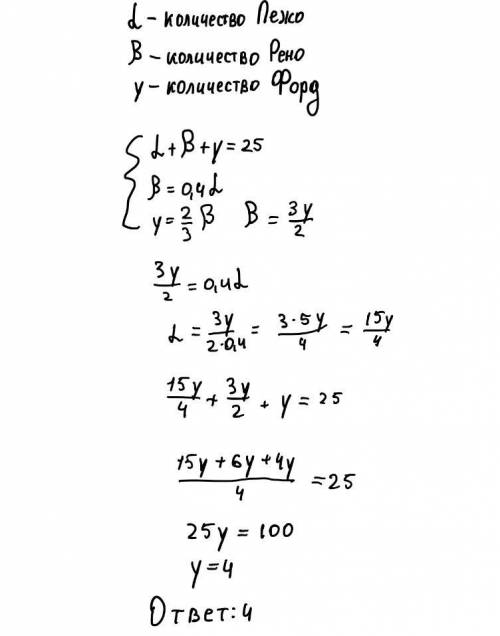 α – количество Пежо
β – количество Рено
γ – количество Форд
{ α + β + γ = 25
β = 0,4α
γ = 2/3 β β = 3γ/2
3γ/2 = 0,4α
α = 3γ/(2·0,4) = 3·5γ/4 = 15γ/4
15γ/4 + 3γ/2 + γ = 25
(15γ + 6γ + 4γ)/4 = 25
25γ = 100
γ = 4
Ответ: 4